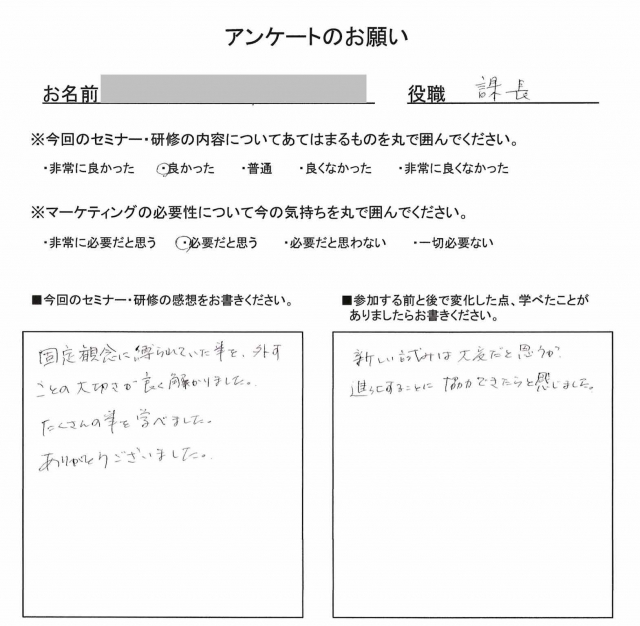 アンケートのお願い
お名前 役職 課長
※今回のセミナー・研修の内容についてあてはまるものを丸で囲んでください。
・非常に良かった ・良かった ・普通 ・良くなかった ・非常に良くなかった
※マーケティングの必要性について今の気持ちを丸で囲んでください。
・非常に必要だと思う ・必要だと思う ・必要だと思わない ・一切必要ない
■今回のセミナー・研修の感想をお書きください。
固定観念に縛られていた事を、外す
ことの大切さが良く解かりました。
たくさんの事を学べました。
ありがとうございました。
■参加する前と後で変化した点、学べたことが
ありましたらお書きください。
新しい試みは大変だと思うが
進化することに協力できたらと感じました。